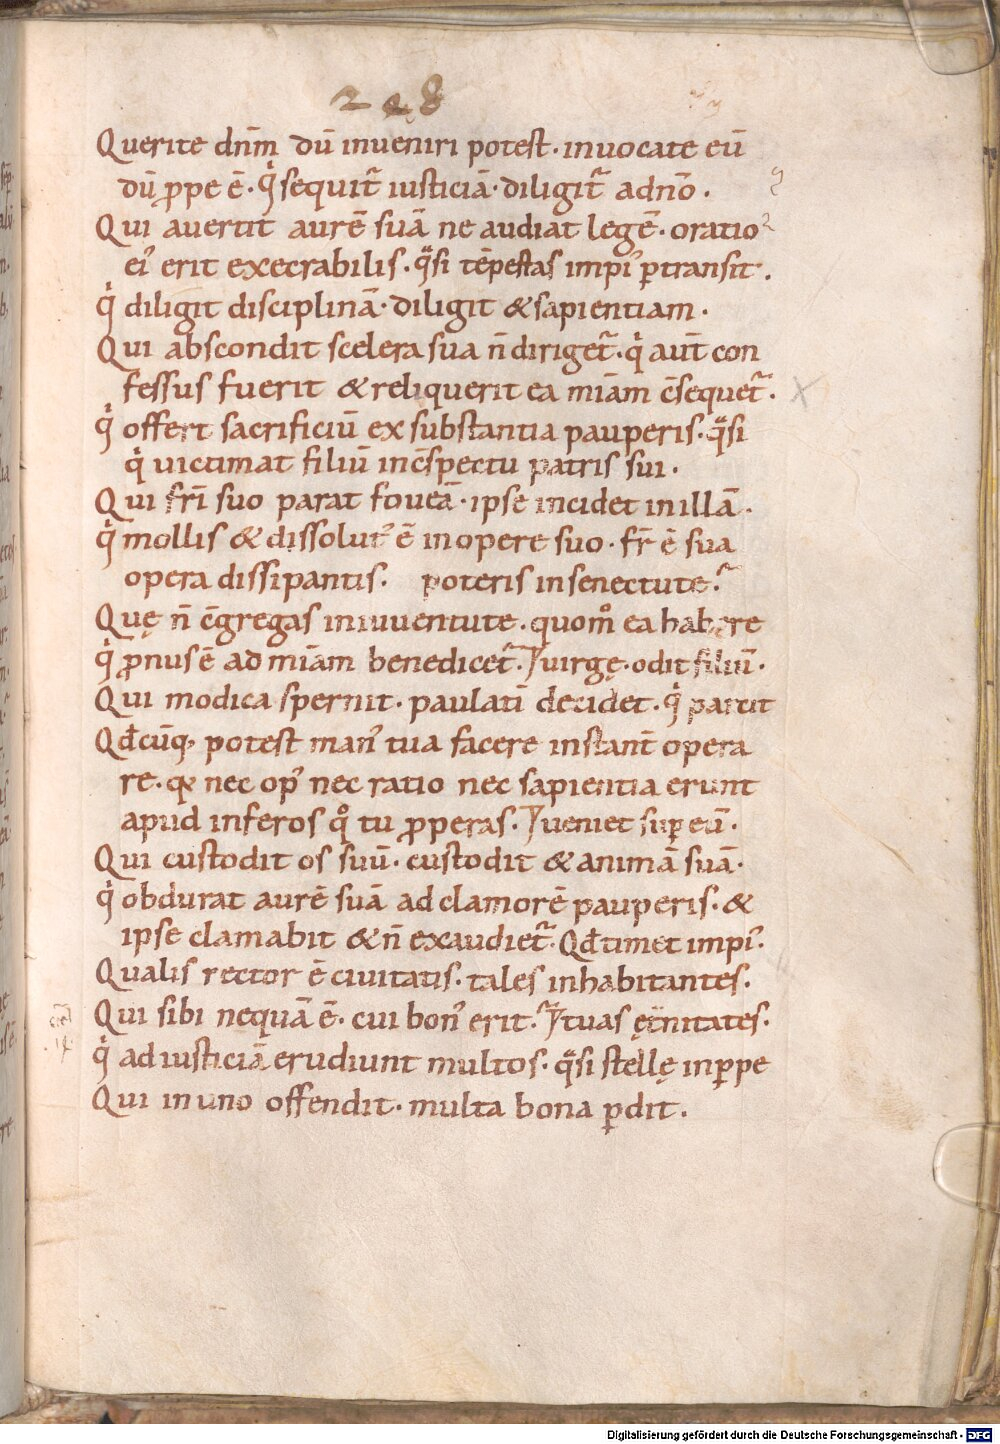 248
Querite dnm̄ dū inueniri potest · inuocate eū
dū ꝓpe ē · q̇ sequit᷑ iusticiā · diligit᷑ adno᷎ .
Qui auertit aurē suā ne audiat legē · oratio
ei᾿ erit execrabilis · qᷓsi tēpestas impi᾿ ꝑtransit .
q̇ diligit disciplinā · diligit & sapientiam .
Qui abscondit scelera sua n̄ diriget᷑ · q̇ aut̄ con
fessus fuerit & reliquerit ea miām c̄sequet᷑ .
q̇ offert sacrificiū ex substantia pauperis · qᷓsi
q̇ uictimat filiū inc̄spectu patris sui .
Qui fri᷎ suo parat foueā · ipse incidet inillā .
q̇ mollis & dissolut᾿ ē inopere suo · fr̄ ē sua
opera dissipantis . poteris insenectute .᷑
Quę n̄ c̄gregas iniuuentute · quom̊ ea habere
q̇ ꝓnus ē ad miām benedicet᷑ . uirgę · odit filiū .
Qui modica spernit · paulati᷎ decidet · q̇ partit
Qđcūq, potest man᾿ tua facere instant̄ opera
re · qꝫ nec op᾿ nec ratio nec sapientia erunt
apud inferos q̊ tu ꝓperas . ueniet suꝑ eū .
Qui custodit os suū · custodit & animā suā .
q̇ obdurat aurē suā ad clamorē pauperis · &
ipse clamabit & n̄ exaudiet᷑ . Qđ timet impi᾿ .
Qualis rector ē ciuitatis · tales inhabitantes .
Qui sibi nequā ē · cui bon᾿ erit . tuas ęt̄nitates .
q̇ ad iusticiā erudiunt multos · qᷓsi stellę inꝑpe
Qui in uno offendit · multa bona ꝑdit .
Digitalisierung gefördert durch die Deutsche Forschungsgemeinschaft - DFG